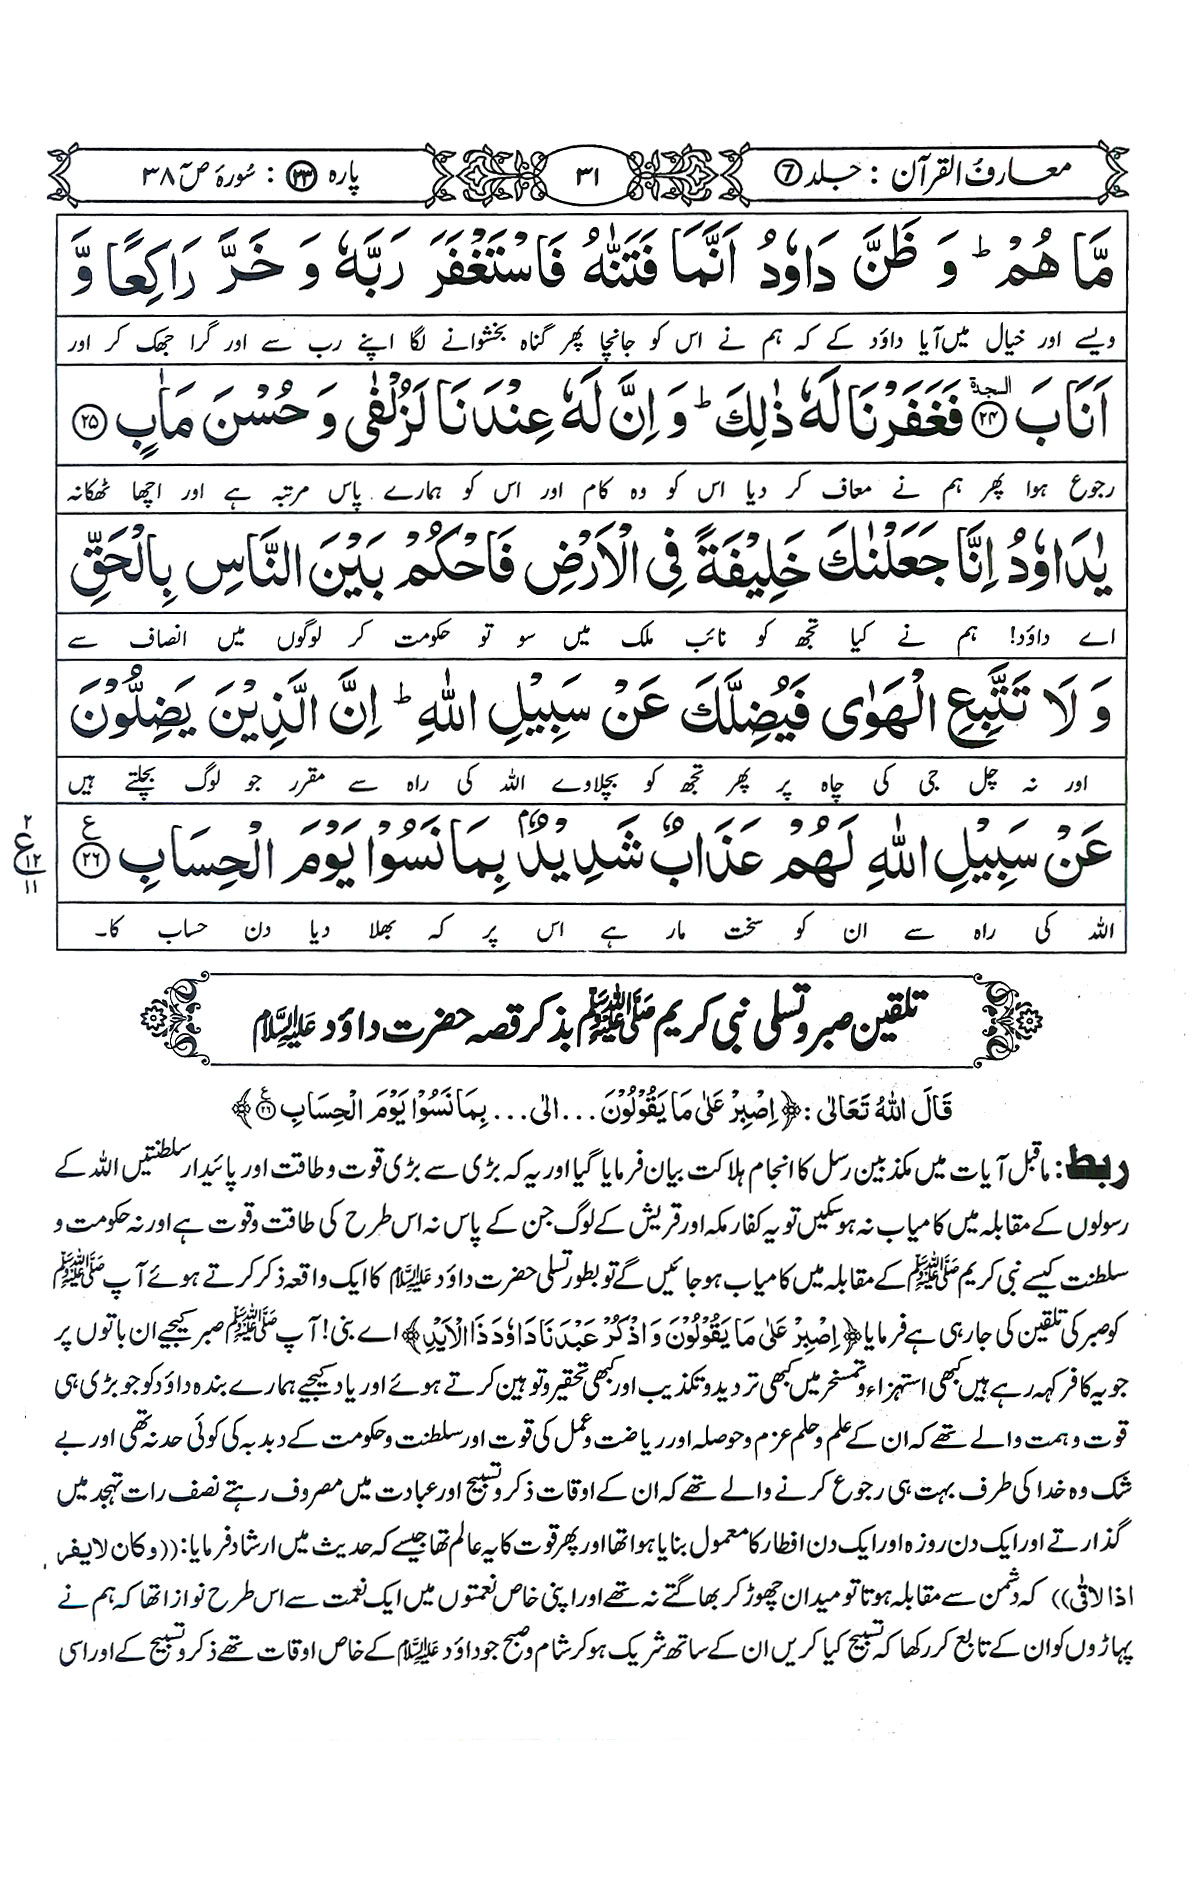 معارف القرآن : جلد ۷
۳۱
پارہ ۲۳ : سُورۂ صٓ ۳۸
مَّا هُمْ ؕ وَ ظَنَّ دَاوٗدُ اَنَّمَا فَتَنّٰهُ فَاسْتَغْفَرَ رَبَّهٗ وَ خَرَّ رَاكِعًا وَّ
ویسے اور خیال میں آیا داؤد کے کہ ہم نے اس کو جانچا پھر گناہ بخشوانے لگا اپنے رب سے اور گرا جھک کر اور
اَنَابَ ۲۴ السجدۃ فَغَفَرْنَا لَهٗ ذٰلِكَ ؕ وَ اِنَّ لَهٗ عِنْدَنَا لَزُلْفٰى وَ حُسْنَ مَاٰبٍ ۲۵
رجوع ہوا پھر ہم نے معاف کر دیا اس کو وہ کام اور اس کو ہمارے پاس مرتبہ ہے اور اچھا ٹھکانہ
يٰدَاوٗدُ اِنَّا جَعَلْنٰكَ خَلِيْفَةً فِى الْاَرْضِ فَاحْكُمْ بَيْنَ النَّاسِ بِالْحَقِّ
اے داؤد! ہم نے کیا تجھ کو نائب ملک میں سو تو حکومت کر لوگوں میں انصاف سے
وَ لَا تَتَّبِعِ الْهَوٰى فَيُضِلَّكَ عَنْ سَبِيْلِ اللهِ ؕ اِنَّ الَّذِيْنَ يَضِلُّوْنَ
اور نہ چل جی کی چاہ پر پھر تجھ کو بچلاوے اللہ کی راہ سے مقرر جو لوگ بچلتے ہیں
عَنْ سَبِيْلِ اللهِ لَهُمْ عَذَابٌ شَدِيْدٌۢ بِمَا نَسُوْا يَوْمَ الْحِسَابِ ۲۶ ع
۲ ع ۱۲ ۱۱
اللہ کی راہ سے ان کو سخت مار ہے اس پر کہ بھلا دیا دن حساب کا۔
تلقین صبر و تسلی نبی کریم ﷺ بذکر قصہ حضرت داؤد علیہ السلام
قَالَ اللهُ تَعَالٰى : ﴿اِصْبِرْ عَلٰى مَا يَقُوْلُوْنَ ... الٰى ... بِمَا نَسُوْا يَوْمَ الْحِسَابِ ۲۶﴾
ربط : ماقبل آیات میں مکذبین رسل کا انجام ہلاکت بیان فرمایا گیا اور یہ کہ بڑی سے بڑی قوت و طاقت اور پائیدار سلطنتیں اللہ کے
رسولوں کے مقابلہ میں کامیاب نہ ہوسکیں تو یہ کفار مکہ اور قریش کے لوگ جن کے پاس نہ اس طرح کی طاقت و قوت ہے اور نہ حکومت و
سلطنت کیسے نبی کریم ﷺ کے مقابلہ میں کامیاب ہوجائیں گے تو بطور تسلی حضرت داؤد علیہ السلام کا ایک واقعہ ذکر کرتے ہوئے آپ ﷺ
کو صبر کی تلقین کی جارہی ہے فرمایا ﴿اِصْبِرْ عَلٰى مَا يَقُوْلُوْنَ وَاذْكُرْ عَبْدَنَا دَاوٗدَ ذَا الْاَيْدِ﴾ اے نبی! آپ ﷺ صبر کیجیے ان باتوں پر
جو یہ کافر کہہ رہے ہیں کبھی استہزاء و تمسخر میں کبھی تردید و تکذیب اور کبھی تحقیر و توہین کرتے ہوئے اور یاد کیجیے ہمارے بندہ داؤد کو جو بڑی ہی
قوت و ہمت والے تھے کہ ان کے علم و حلم عزم و حوصلہ اور ریاضت و عمل کی قوت اور سلطنت و حکومت کے دبدبہ کی کوئی حد نہ تھی اور بے
شک وہ خدا کی طرف بہت ہی رجوع کرنے والے تھے کہ ان کے اوقات ذکر و تسبیح اور عبادت میں مصروف رہتے نصف رات تہجد میں
گذارتے اور ایک دن روزہ اور ایک دن افطار کا معمول بنایا ہوا تھا اور پھر قوت کا یہ عالم تھا جیسے کہ حدیث میں ارشاد فرمایا: ((وکان لا یفر
اذا لاقی)) کہ دشمن سے مقابلہ ہوتا تو میدان چھوڑ کر بھاگتے نہ تھے اور اپنی خاص نعمتوں میں ایک نعمت سے اس طرح نوازا تھا کہ ہم نے
پہاڑوں کو ان کے تابع کر رکھا کہ تسبیح کیا کریں ان کے ساتھ شریک ہوکر شام و صبح جو داؤد علیہ السلام کے خاص اوقات تھے ذکر و تسبیح کے اور اسی